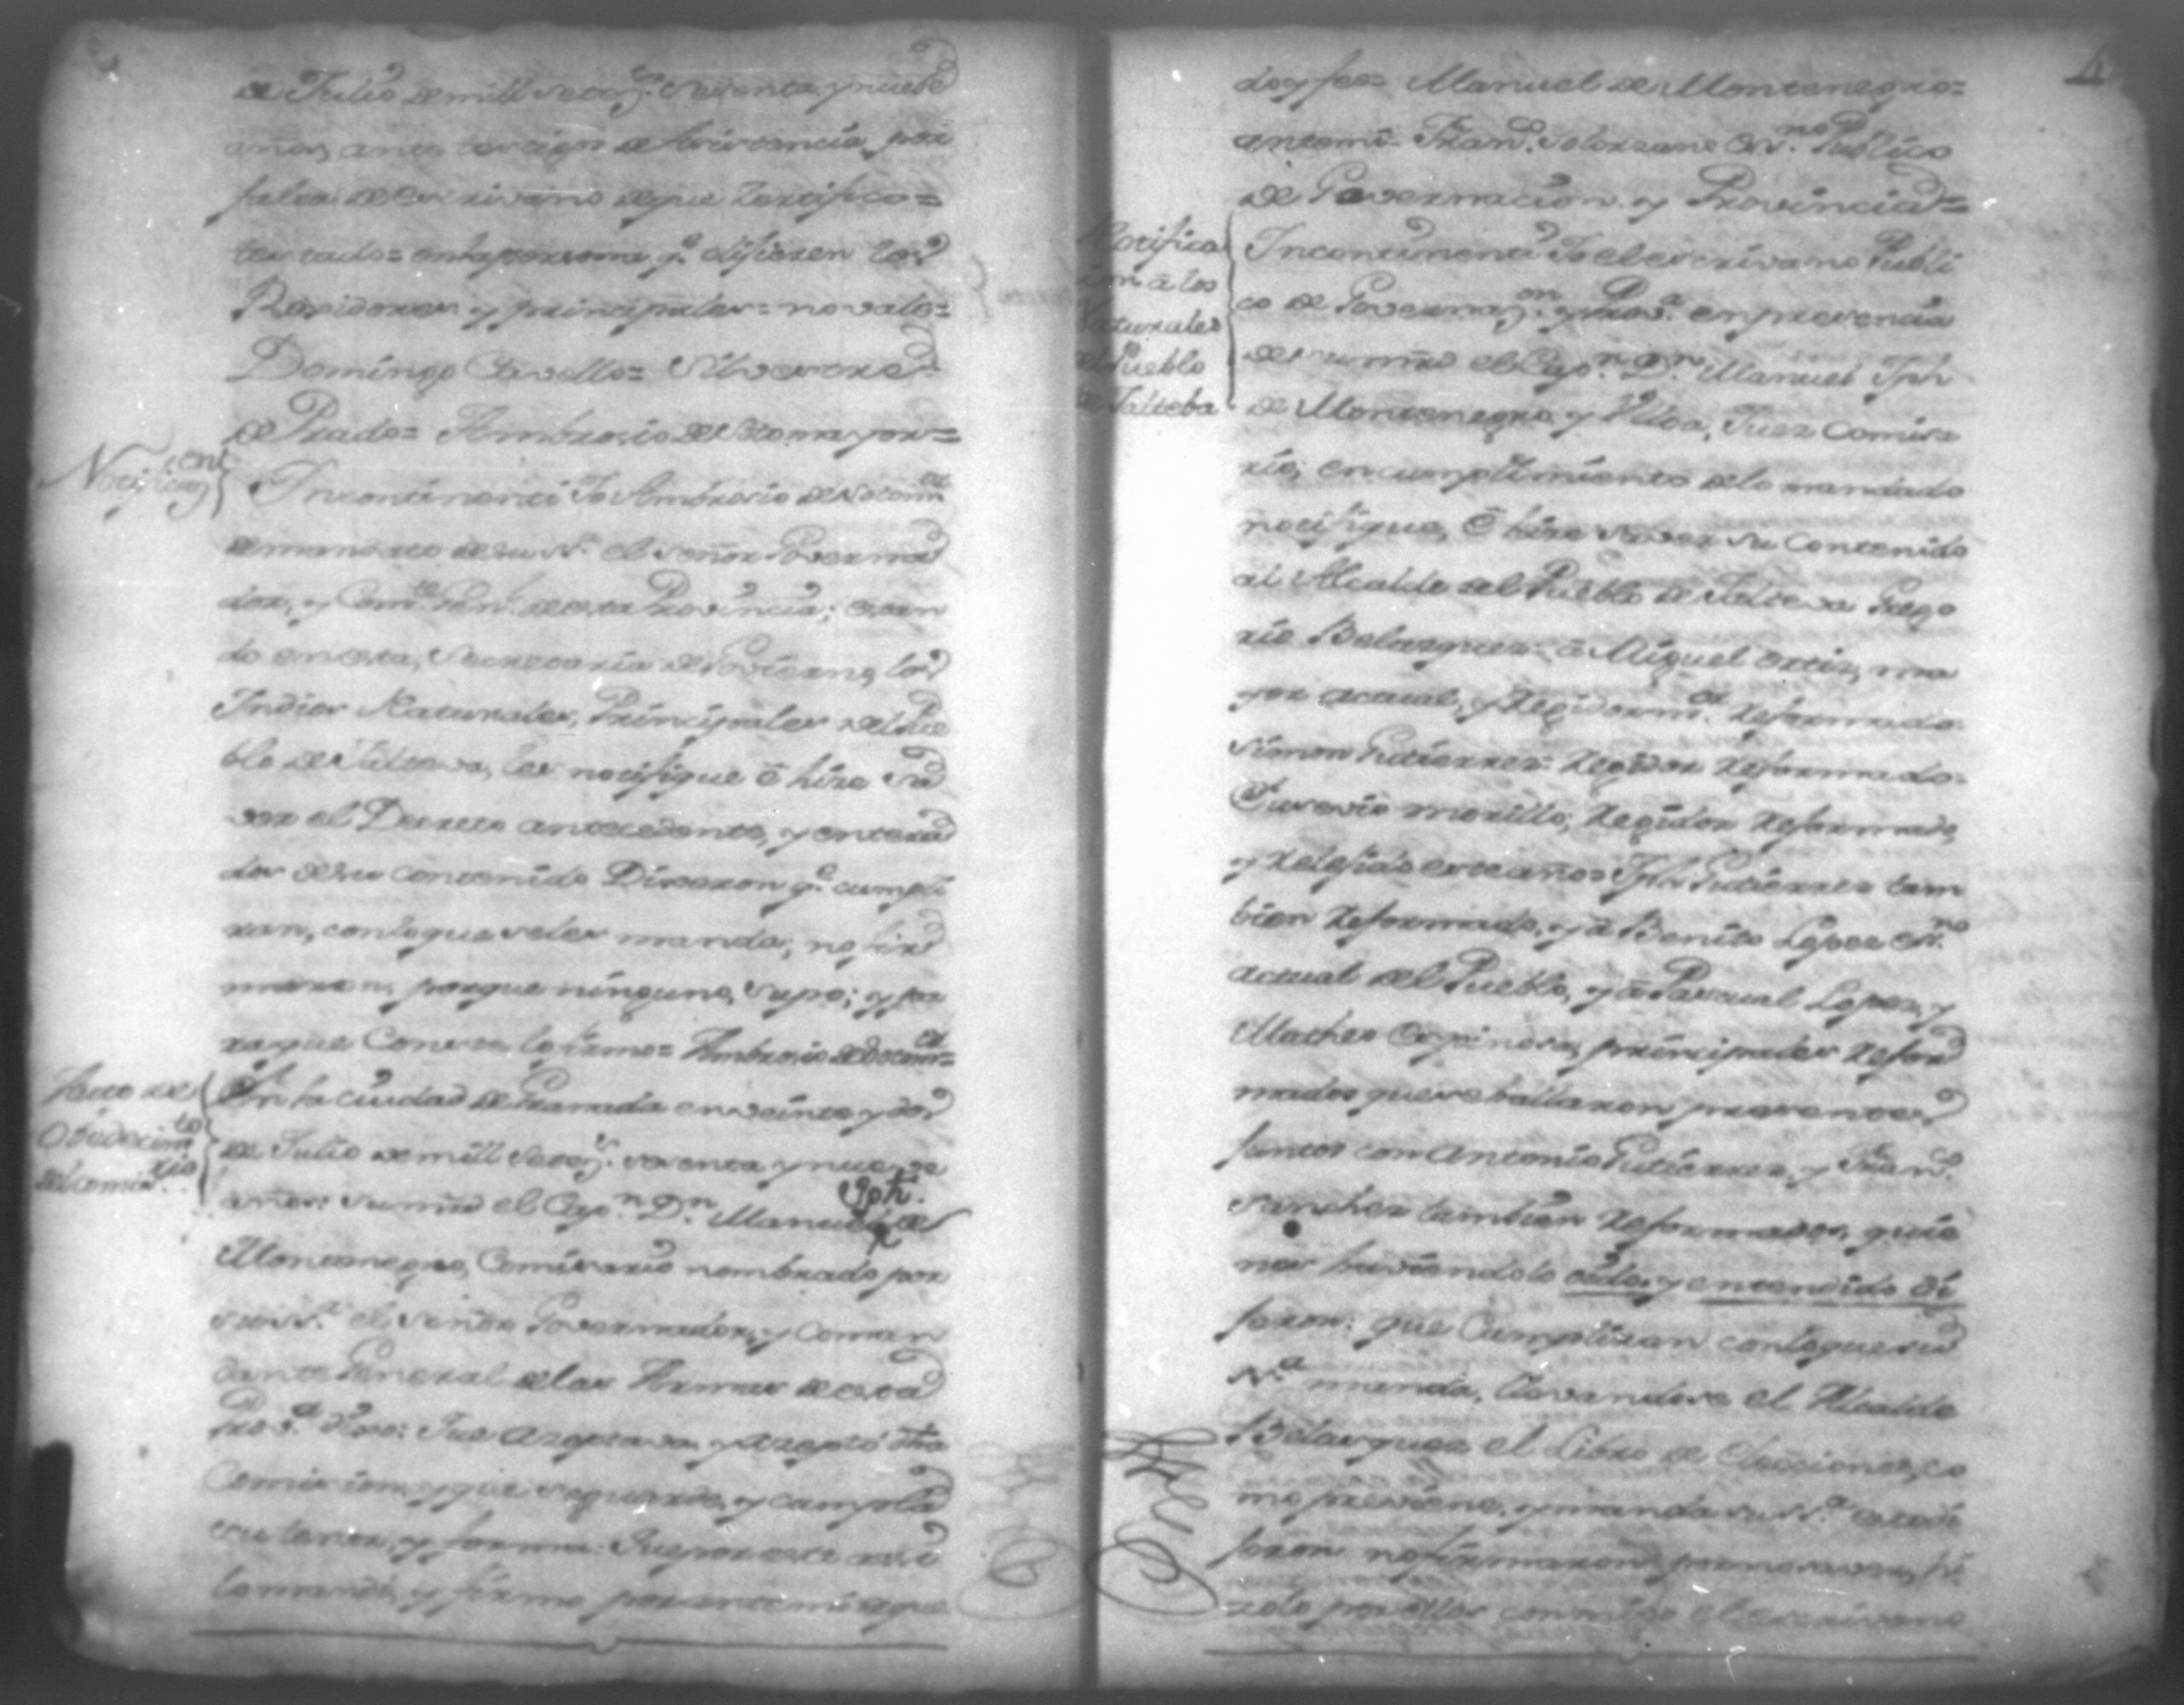 de Julio de mill setez.s sesenta y nueve
años, ante testigos de Asistencia por
falta de Escrivano de que Zertifico=
testado= enla persona q.e elifieren los
Rexidores y principales= no vale=
Domingo Cavello= Silvestre
de Prado= Ambrosio de Sotomayor=
Notificaz.on
Yncontinenti Yo Ambrosio de Sotom.or
de mandato de su S.a el señor Governa
dor, y Com.te Gen.l de esta Provincia; estan
do en esta Secretaria de Govierno, los
Indios Naturales, Principales del Pue
blo de Jalteva, les notifique ê hize sa
ver el Decreto antecedente, y entera
dos de su contenido Dixeron q.e cumpli
ran, conloque seles manda, no fir
maron, porque ninguno, supo; y pa
raque Conste lo firmo= Ambrosio de Sotom.or=
Auto de
Obedecim.to
del comis.rio
En la ciudad de Granada en veinte y dos
de Julio de mill setez.s sesenta y nueve
años: su mrd el Cap.n D.n Manuel Jph. de
Montenegro, Comisario nombrado por
su S.a el señor Governador, y Coman
dante General delas Armas de esta
Prov.a Dixo: Que azeptava y azeptó dha
Comision, y que se guarde, y cumpla
su tenor, y forma. Que por este assi
lo mandó, y firmo por ante mi de que
4
doy fee= Manuel de Montenegro=
antemi= Fran.co Solorzano Ess.no Publico
de Governacion y Provincia=
Notifica
ion a los
Naturales
del Pueblo
de Jalteba
Yncontinenti Yo el escrivano Publi
co de Governaz.on y Prov.a en presencia
de su mrd el Cap.n D.n Manuel Jph
de Montenegro y Ulloa, Juez Comisa
rio; en cumplimiento delo mandado
notifique, ê hize saver su contenido
al Alcalde del Pueblo de Jalteva Grego
rio Belasquez= â Miguel Ortiz, ma
yor actual, y Regidor m.or Reformado
Simon Gutierrez= Regidor Reformado=
Eusevio morillo, Regidor Reformado,
y relejido este año= Jph Gutierrez tam
bien Reformado, y â Benito Lopez Ess.no
actual del Pueblo, y â Pascual Lopez, y
Matheo Espinosa, principales Refor
mados que se hallaron presentes
Juntos con Antonio Gutierrez, y Fran.co
Sanchez tambien Reformados, quie
nes haviendolo oido, y entendido Di
jeron: que Cumpliran conloque su
S.a manda, llevandose el Alcalde
Belasquez el Libro de Elecciones, co
mo previene, y manda su S.a
jeron no firmaron, por no saver, hi
zolo por ellos conmigo el escrivano